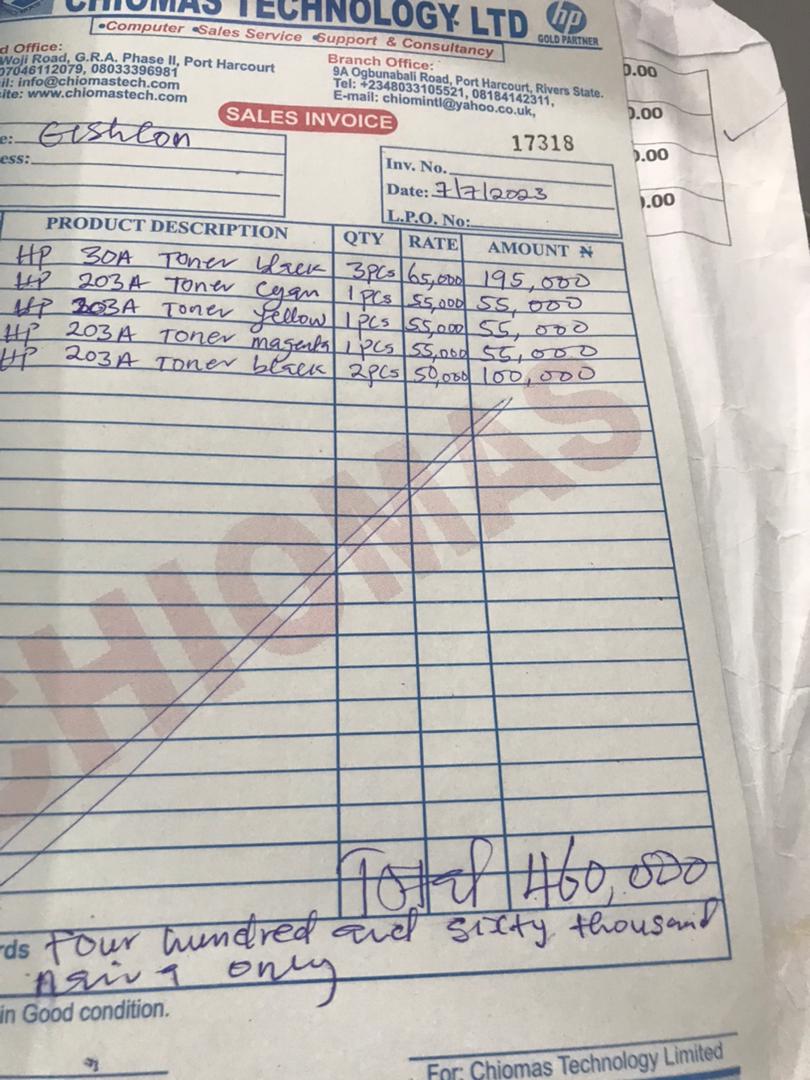 CHIOMAS TECHNOLOGY LTD
hp
GOLD PARTNER
•Computer •Sales Service •Support & Consultancy
d Office:
Woji Road, G.R.A. Phase II, Port Harcourt
07046112079, 08033396981
il: info@chiomastech.com
site: www.chiomastech.com
Branch Office:
9A Ogbunabali Road, Port Harcourt, Rivers State.
Tel: +2348033105521, 08184142311,
E-mail: chiomintl@yahoo.co.uk,
SALES INVOICE
17318
e:
ess:
Inv. No.
Date: 7/7/2023
L.P.O. No:
PRODUCT DESCRIPTION QTY RATE AMOUNT ₦
HP 30A Toner black 3pcs 65,000 195,000
HP 203A Toner Cyan 1pcs 55,000 55,000
HP 203A Toner yellow 1pcs 55,000 55,000
HP 203A Toner magenta 1pcs 55,000 55,000
HP 203A Toner black 2pcs 50,000 100,000
CHIOMAS
Total 460,000
rds four hundred and sixty thousand
naira only
in Good condition.
For: Chiomas Technology Limited
0.00
0.00
0.00
0.00